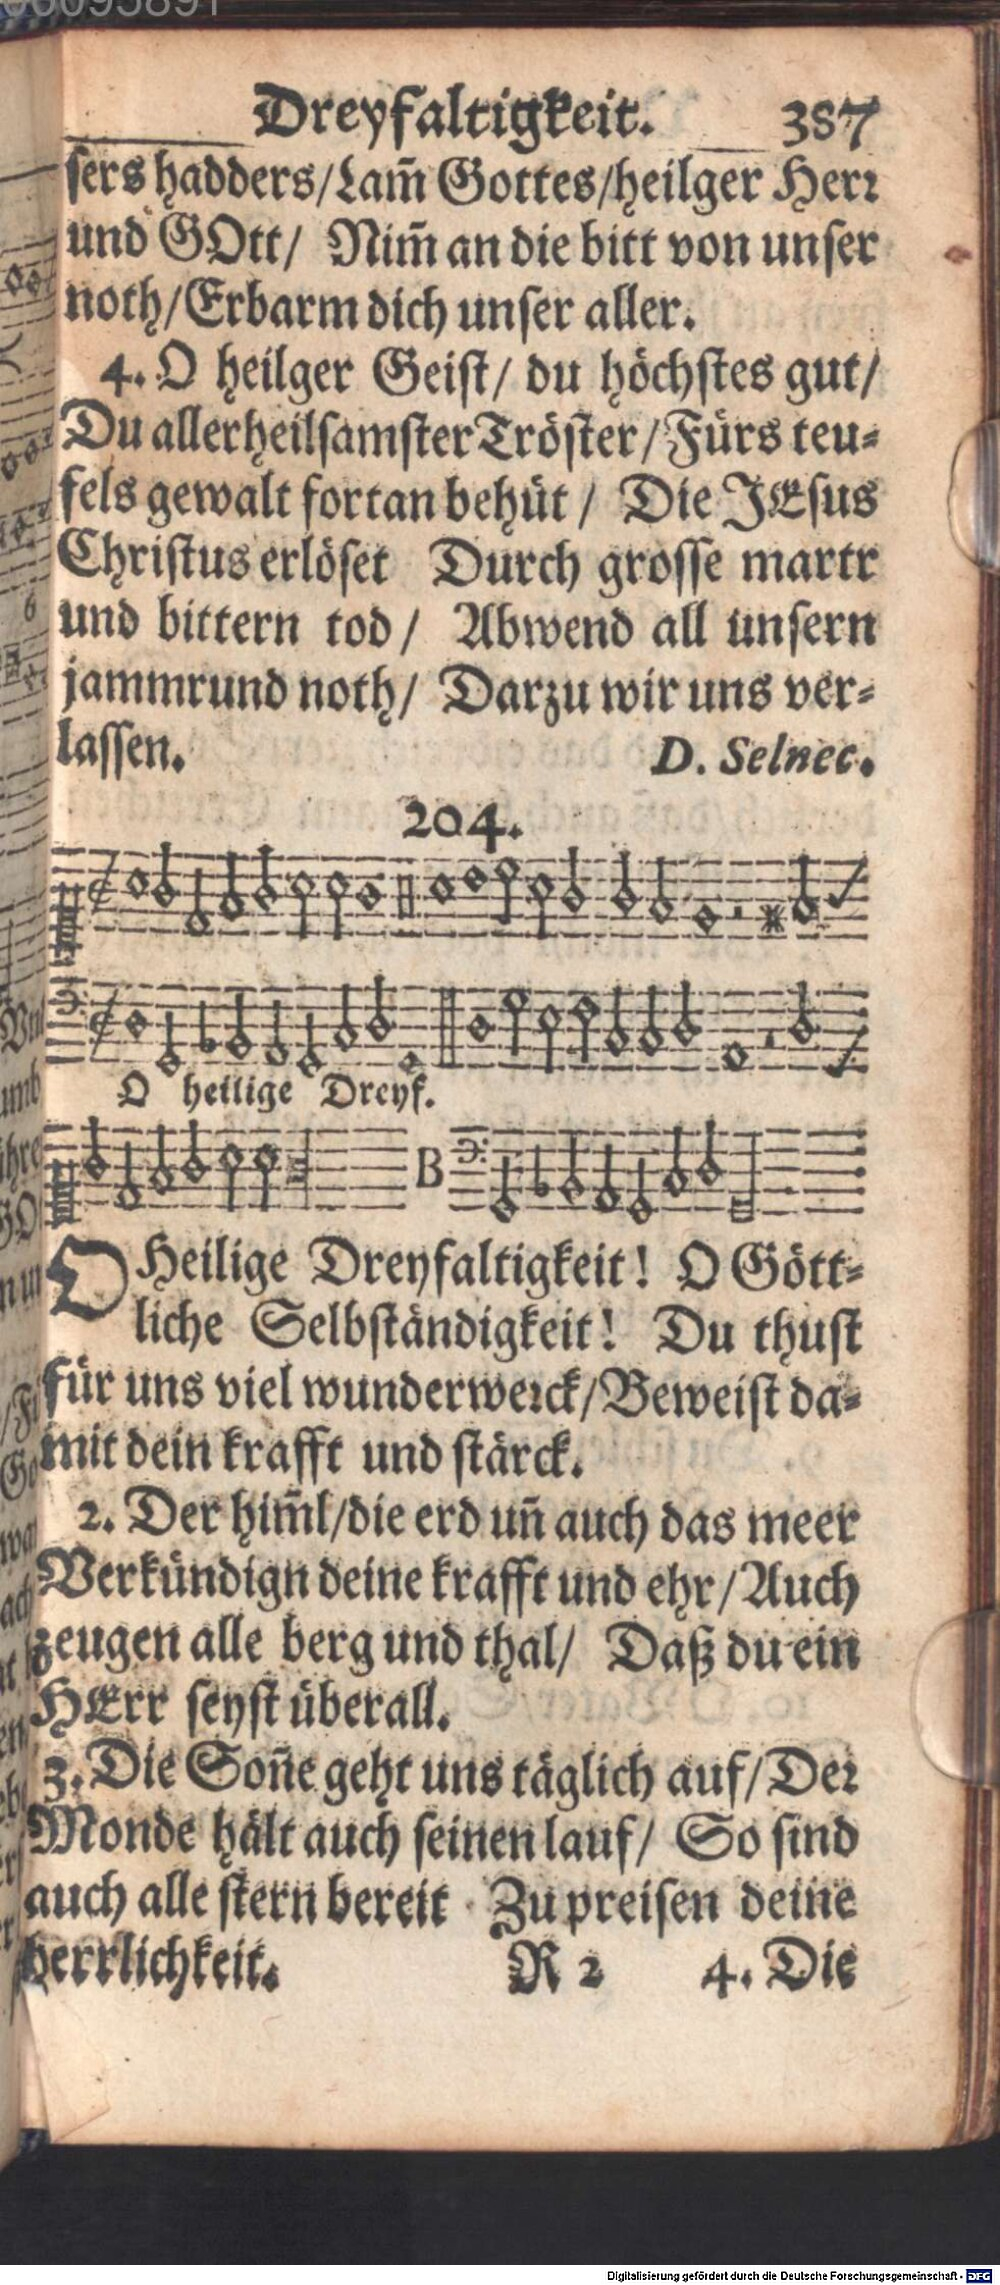 06095891
Dreyfaltigkeit. 387
sers hadders/Lam̃ Gottes/heilger Herr
und GOtt/ Nim̃ an die bitt von unser
noth/Erbarm dich unser aller.
4. O heilger Geist/ du höchstes gut/
Du allerheilsamster Tröster/Fürs teu-
fels gewalt fortan behüt/ Die JEsus
Christus erlöset Durch grosse martr
und bittern tod/ Abwend all unsern
jammr und noth/ Darzu wir uns ver-
lassen. D. Selnec.
204.
O heilige Dreyf.
B
O Heilige Dreyfaltigkeit! O Gött-
liche Selbständigkeit! Du thust
für uns viel wunderwerck/Beweist da-
mit dein krafft und stärck.
2. Der him̃l/die erd uñ auch das meer
Verkündign deine krafft und ehr/Auch
zeugen alle berg und thal/ Daß du ein
HErr seyst überall.
3. Die Soñe geht uns täglich auf/Der
Monde hält auch seinen lauf/ So sind
auch alle stern bereit Zu preisen deine
herrlichkeit. R 2 4. Die
Digitalisierung gefördert durch die Deutsche Forschungsgemeinschaft - DFG